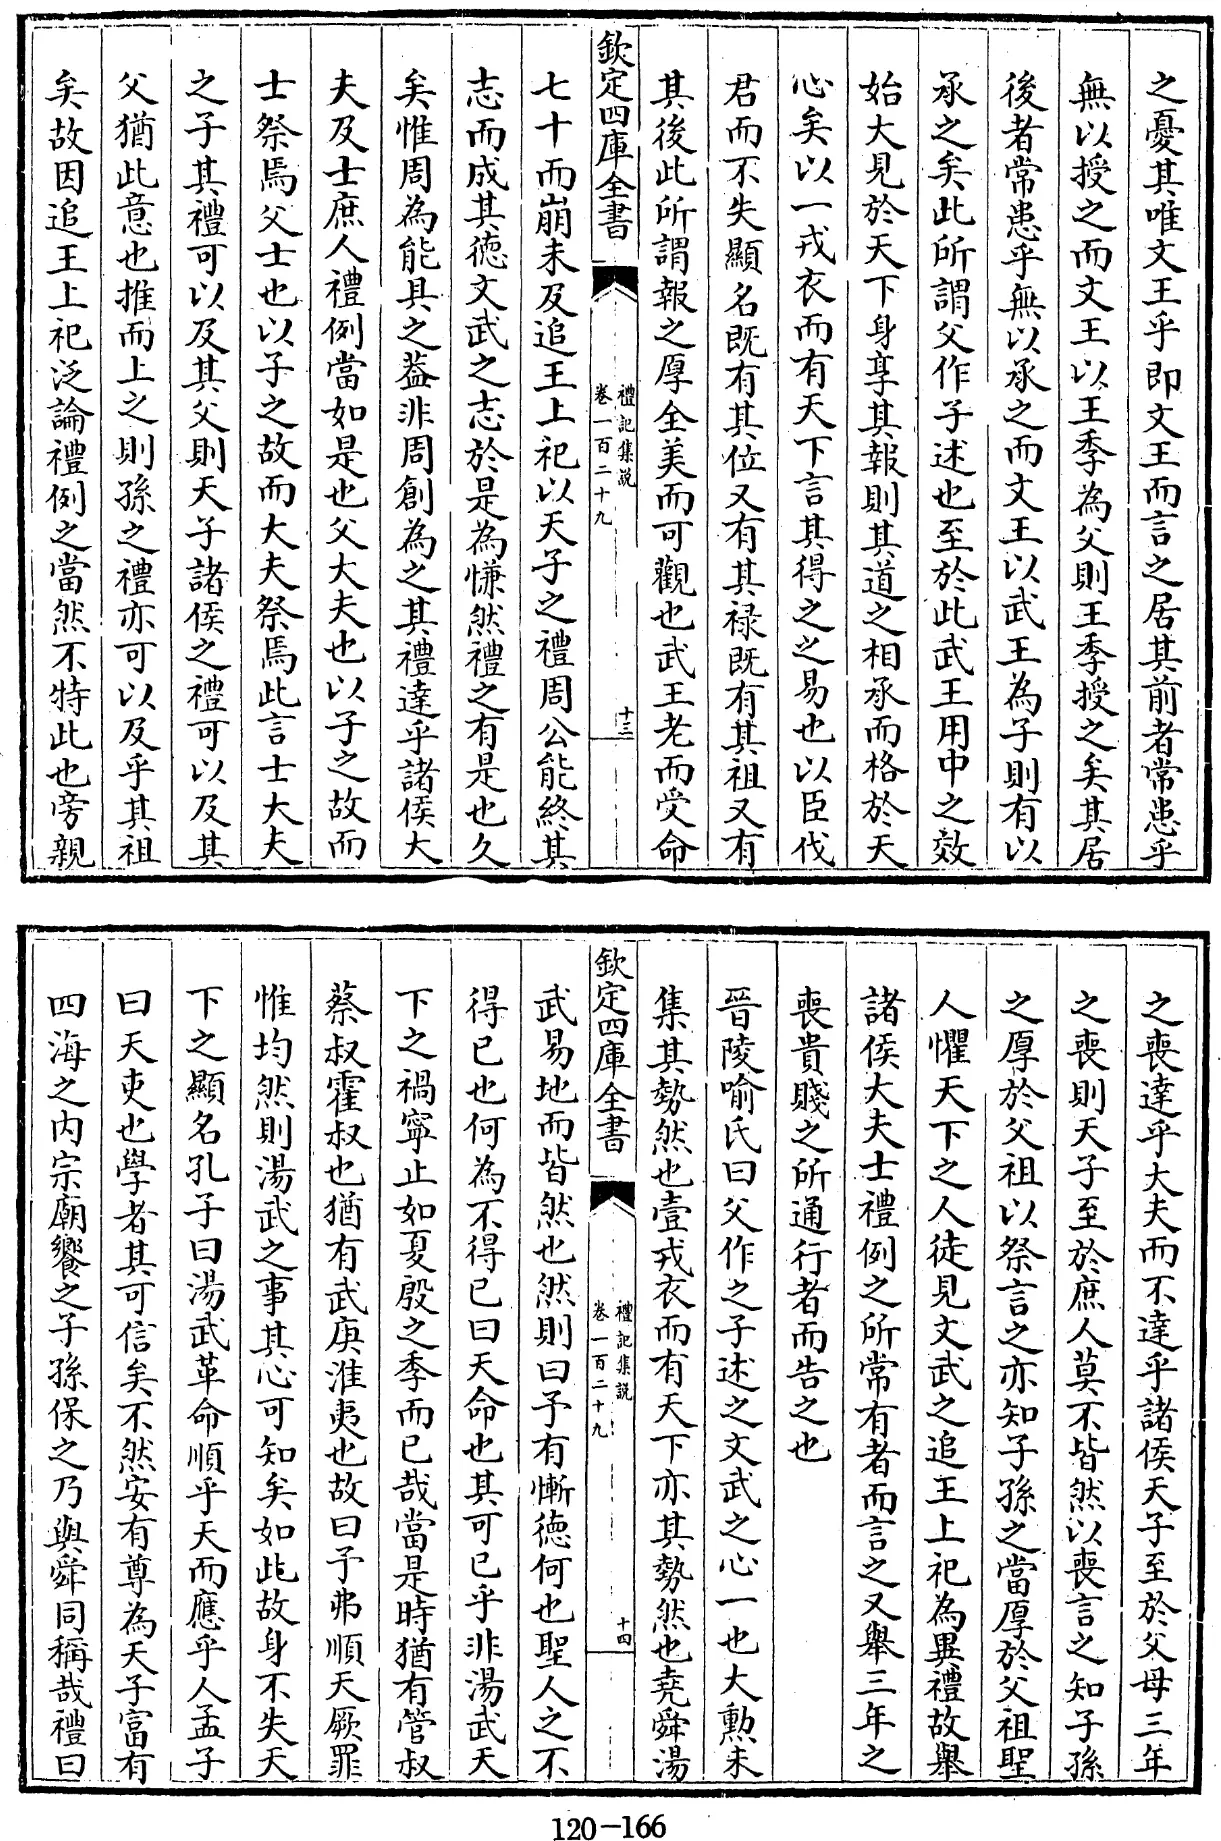 之憂其唯文王乎即文王而言之居其前者常患乎
無以授之而文王以王季為父則王季授之矣其居
後者常患乎無以承之而文王以武王為子則有以
承之矣此所謂父作子述也至於此武王用中之效
始大見於天下身享其報則其道之相承而格於天
心矣以一戎衣而有天下言其得之之易也以臣伐
君而不失顯名既有其位又有其禄既有其祖又有
其後此所謂報之厚全美而可觀也武王老而受命
欽定四庫全書
禮記集説
卷一百二十九
十三
七十而崩未及追王上祀以天子之禮周公能終其
志而成其徳文武之志於是為慊然禮之有是也久
矣惟周為能具之葢非周創為之其禮達乎諸侯大
夫及士庶人禮例當如是也父大夫也以子之故而
士祭焉父士也以子之故而大夫祭焉此言士大夫
之子其禮可以及其父則天子諸侯之禮可以及其
父猶此意也推而上之則孫之禮亦可以及乎其祖
矣故因追王上祀泛論禮例之當然不特此也旁親
之喪達乎大夫而不達乎諸侯天子至於父母三年
之喪則天子至於庶人莫不皆然以喪言之知子孫
之厚於父祖以祭言之亦知子孫之當厚於父祖聖
人懼天下之人徒見文武之追王上祀為異禮故舉
諸侯大夫士禮例之所常有者而言之又舉三年之
喪貴賤之所通行者而告之也
晉陵喻氏曰父作之子述之文武之心一也大勲未
集其勢然也壹戎衣而有天下亦其勢然也堯舜湯
欽定四庫全書
禮記集説
卷一百二十九
十四
武易地而皆然也然則曰予有慚徳何也聖人之不
得已也何為不得已曰天命也其可已乎非湯武天
下之禍寧止如夏殷之季而已哉當是時猶有管叔
蔡叔霍叔也猶有武庚淮夷也故曰予弗順天厥罪
惟均然則湯武之事其心可知矣如此故身不失天
下之顯名孔子曰湯武革命順乎天而應乎人孟子
曰天吏也學者其可信矣不然安有尊為天子富有
四海之内宗廟饗之子孫保之乃與舜同稱哉禮曰
120-166